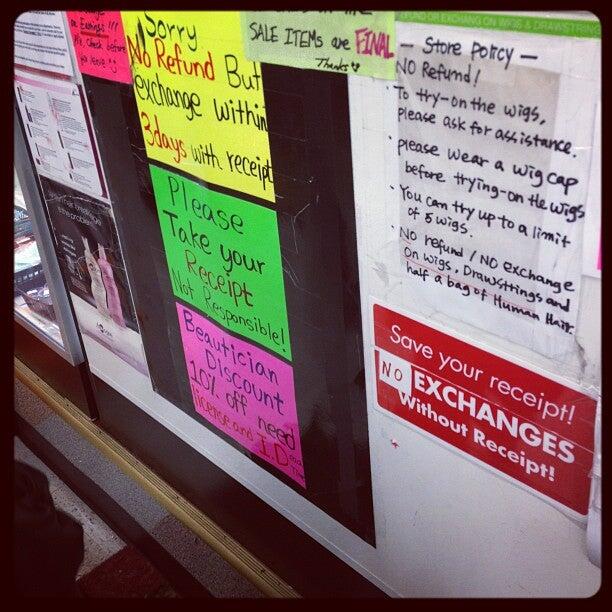 on Earrings!!!
Pls, Check before
you leave
Sorry
No Refund But
exchange within
3days with receipt
Please
Take your
Receipt
Not Responsible!
Beautician
Discount
10% off need
license and I.D
SALE ITEMS are FINAL
Thanks
FUND OR EXCHANGE ON WIGS & DRAWSTRING
— Store Policy —
NO Refund!
To try-on the wigs,
please ask for assistance.
• please wear a wig cap
before trying-on the wigs
• You can try up to a limit
of 5 wigs.
• NO refund / NO exchange
on wigs, Drawsttings and
half a bag of Human Hair.
Save your receipt!
NO EXCHANGES
Without Receipt!